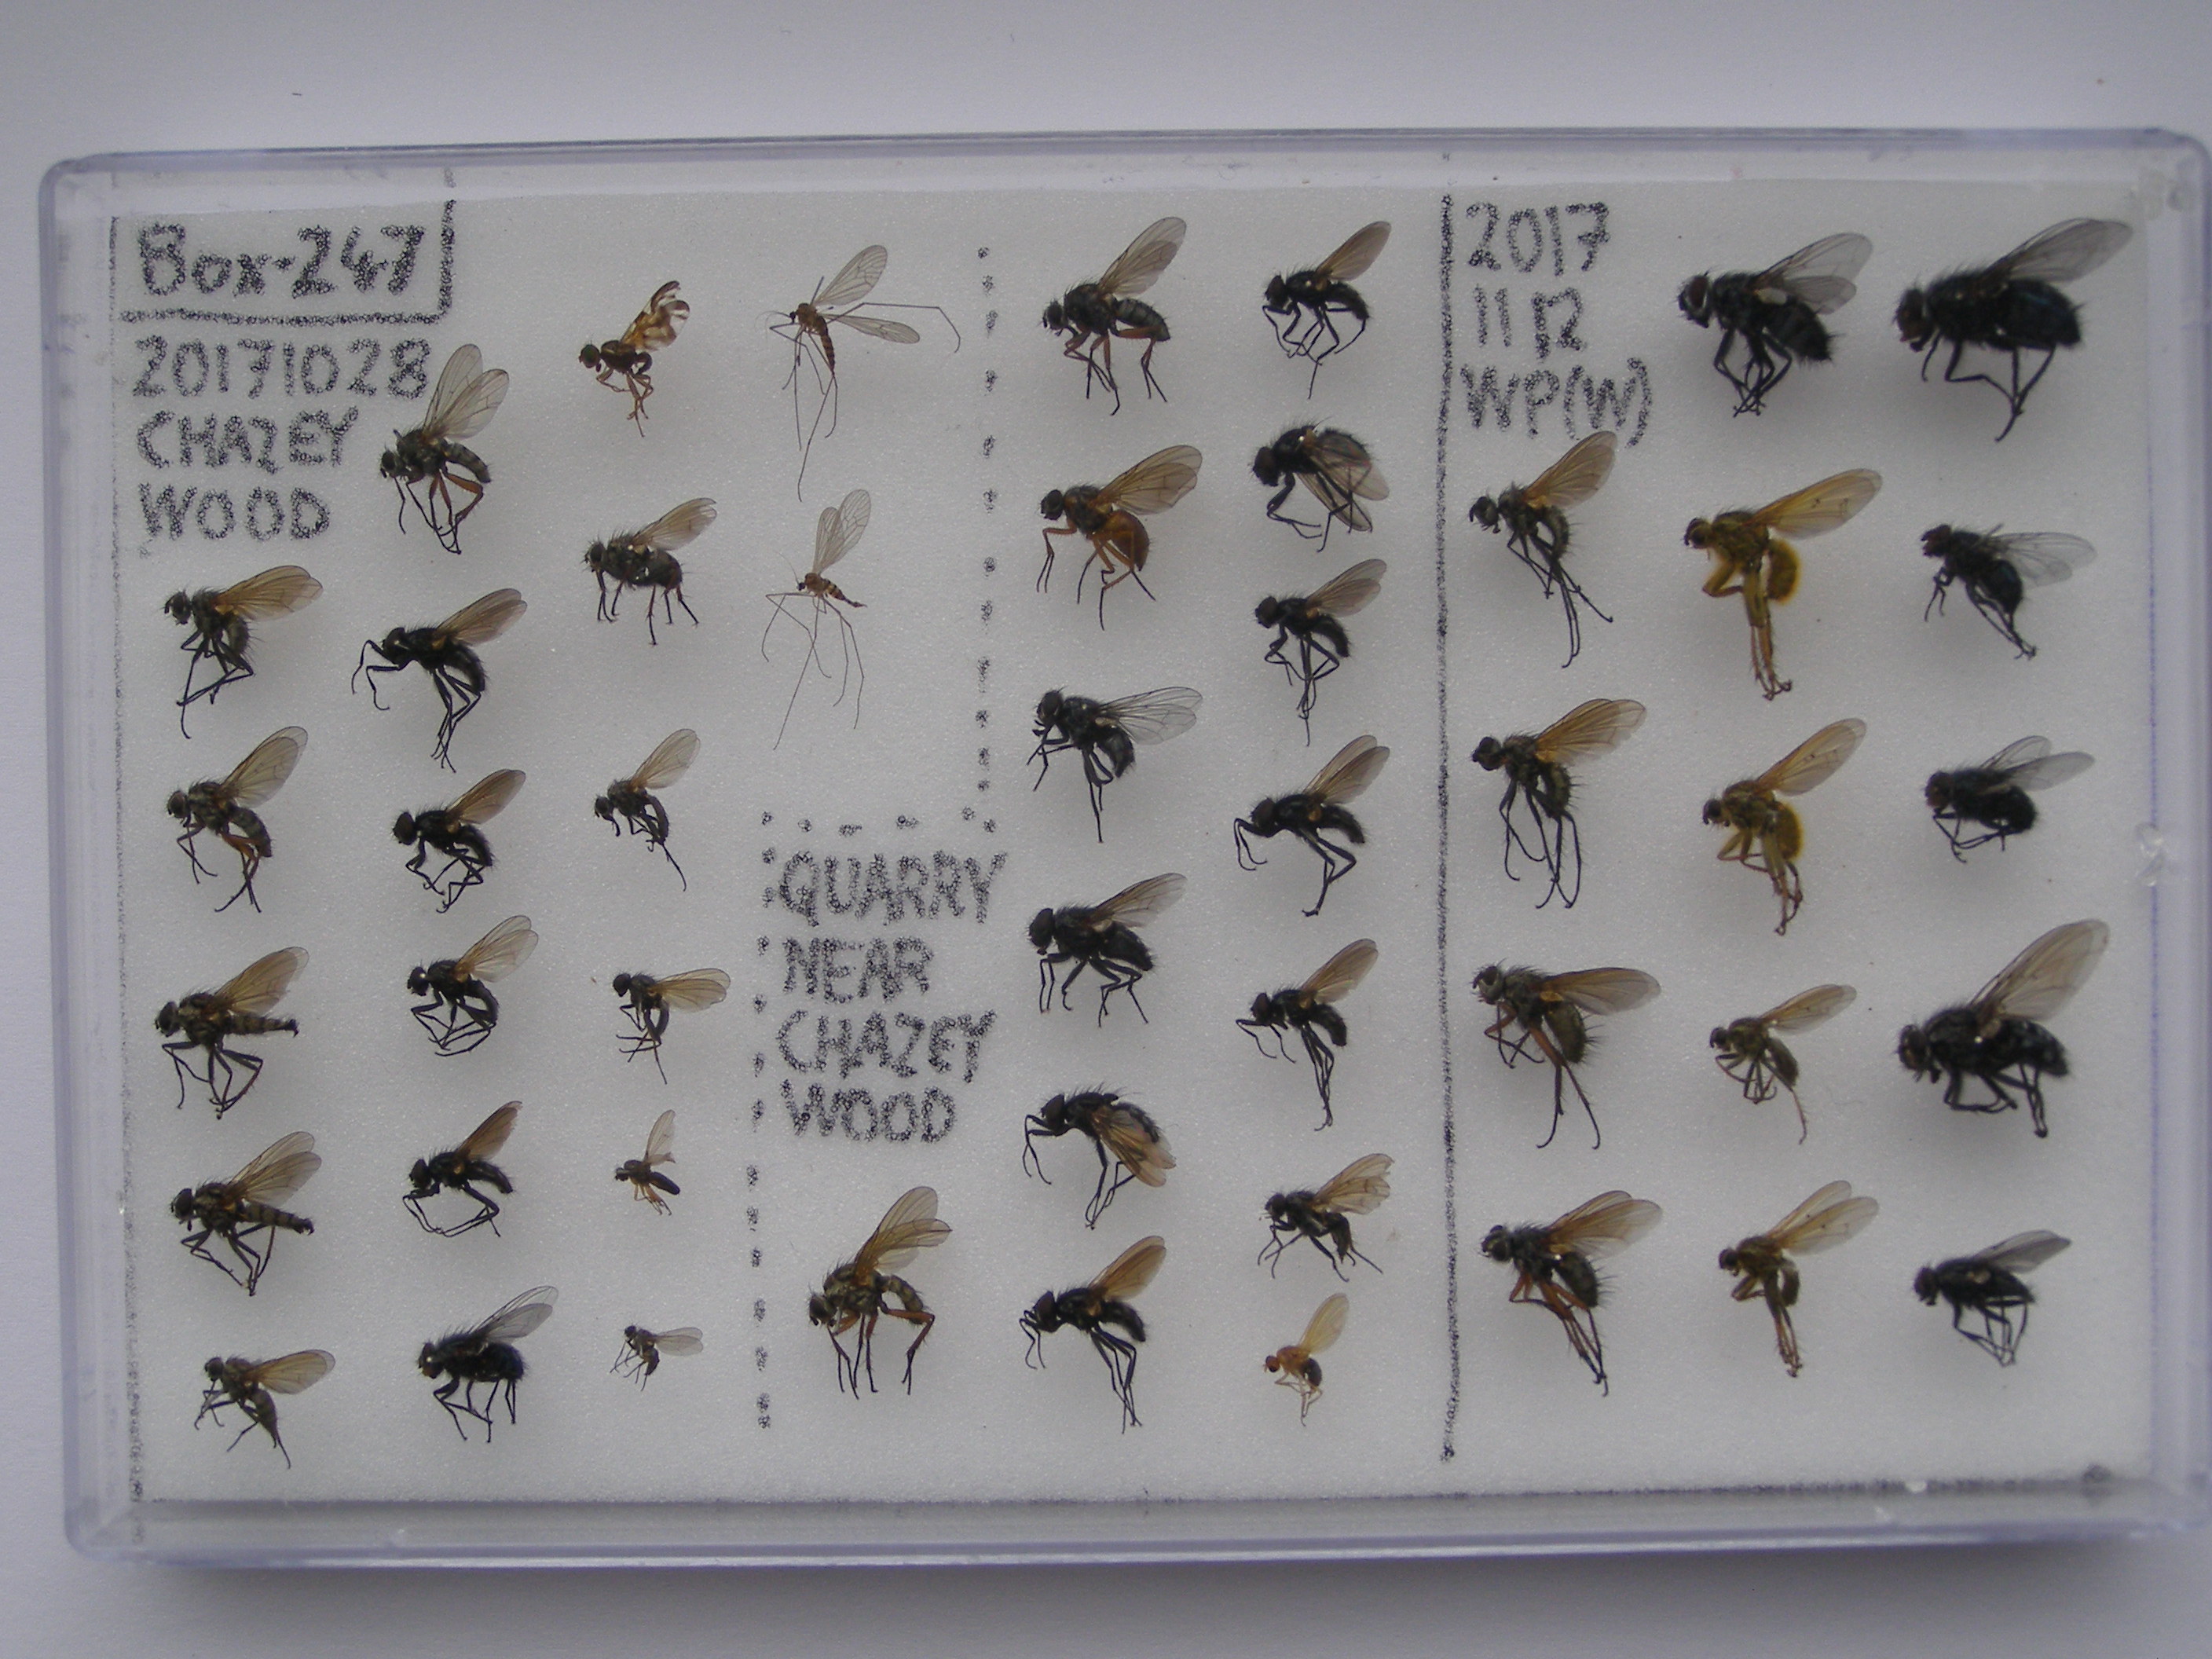 Box-247
20171028
CHAZEY
WOOD
QUARRY
NEAR
CHAZEY
WOOD
2017
11 12
WP(W)